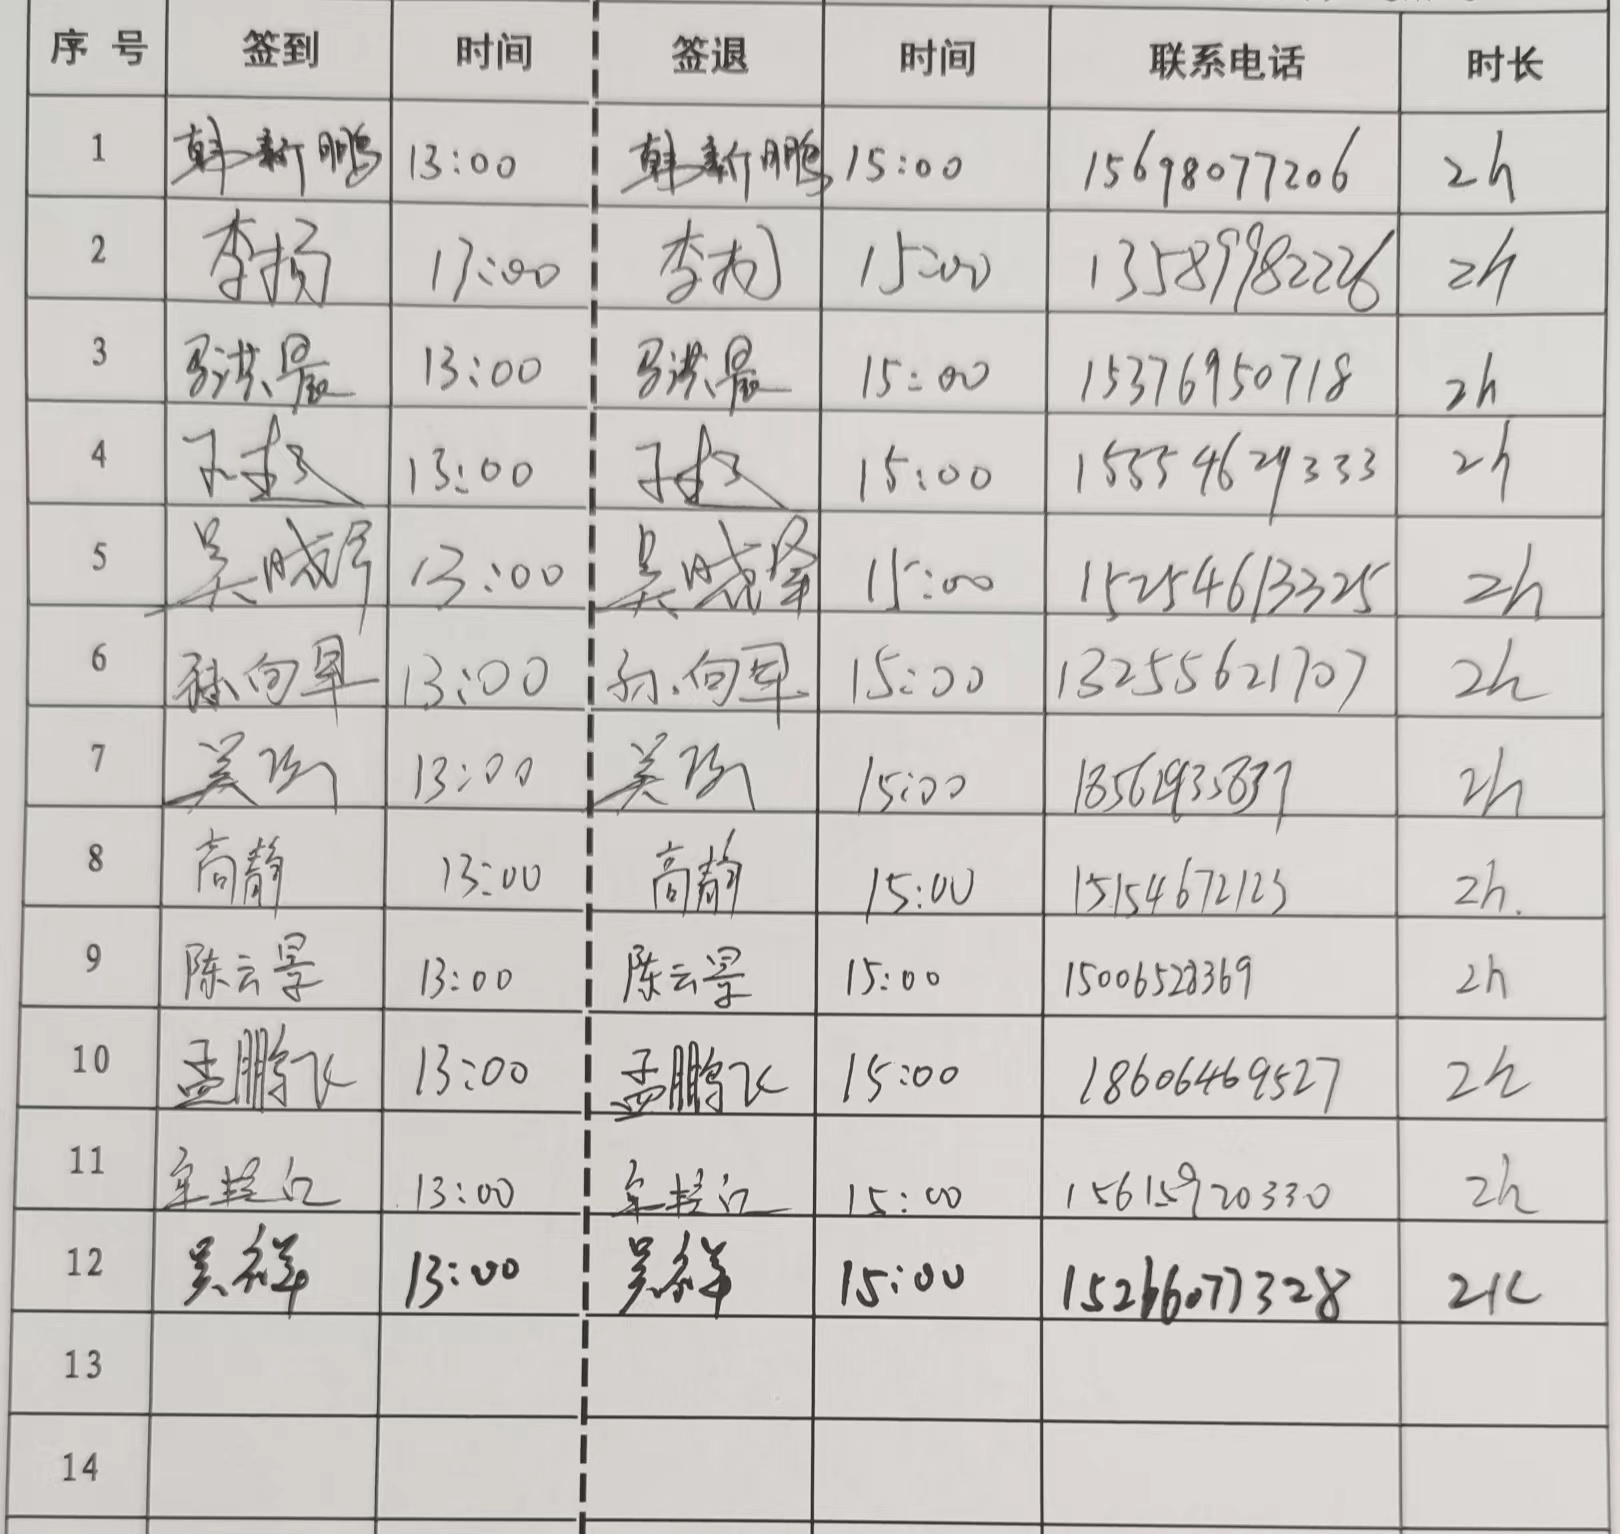 序 号 签到 时间 签退 时间 联系电话 时长
1 韩新鹏 13:00 韩新鹏 15:00 15698077206 2h
2 李扬 13:00 李扬 15:00 13589982226 2h
3 马洪晨 13:00 马洪晨 15:00 15376950718 2h
4 13:00 15:00 15554629333 2h
5 吴晓军 13:00 吴晓军 15:00 15254613325 2h
6 孙向军 13:00 孙向军 15:00 13255621707 2h
7 吴 13:00 吴 15:00 2h
8 高静 13:00 高静 15:00 15154672123 2h.
9 陈云 13:00 陈云 15:00 15006528369 2h
10 孟鹏飞 13:00 孟鹏飞 15:00 18606469527 2h
11 13:00 15:00 15615920330 2h
12 吴祥 13:00 吴祥 15:00 15266077328 2h
13
14